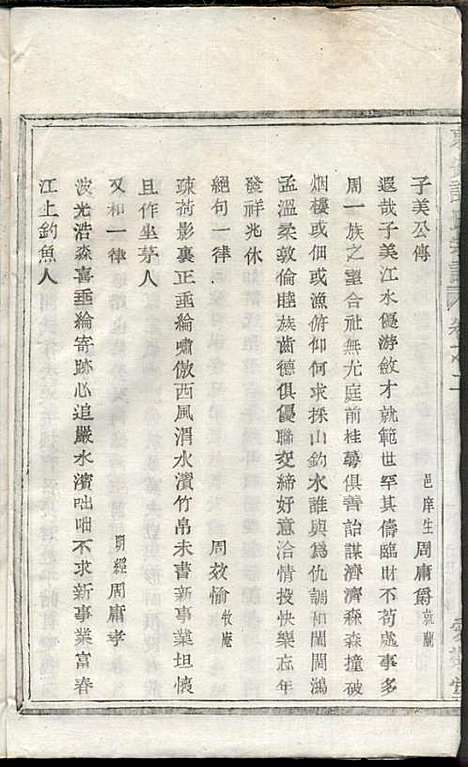 子美公傳
邑庠生周庸爵
遐哉子美江水優游斂才就範世罕其儔臨財不苟處事多
周一族之望合社無尤庭前桂蕚俱善詒謀濟濟森森撞破
烟樓或佃或漁俯仰何求採山釣水誰與為仇調和閭閻鴻
孟溫柔敦倫睦族齒德俱優聯交締好意洽情投快樂忘年
發祥兆休
絕句一律
周效愉牧庵
疎荷影裏正垂綸嘯傲西風渭水濱竹帛未書新事業坦懷
且作坐茅人
又和一律
明經周庸孝
波光浩淼喜垂綸寄跡心追嚴水濱咄咄不求新事業富春
江上釣魚人
卷之二